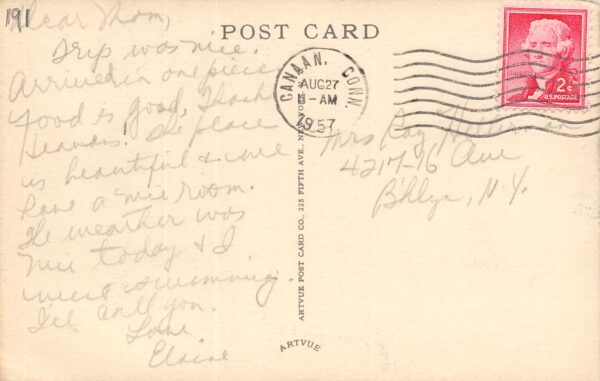 191
Dear Mom,
Trip was nice.
Arrived in one piece
Food is good, Thank
Heavens! The place
is beautiful & we
have a nice room.
The weather was
nice today & I
went swimming.
I'll call you.
Love
Elaine
POST CARD
CANAAN, CONN.
AUG 27
11-AM
1957
2¢
U.S. POSTAGE
Mrs Ray
4217-16 Ave
B'klyn, N.Y.
ARTVUE POST CARD CO., 225 FIFTH AVE., NEW YORK
ARTVUE